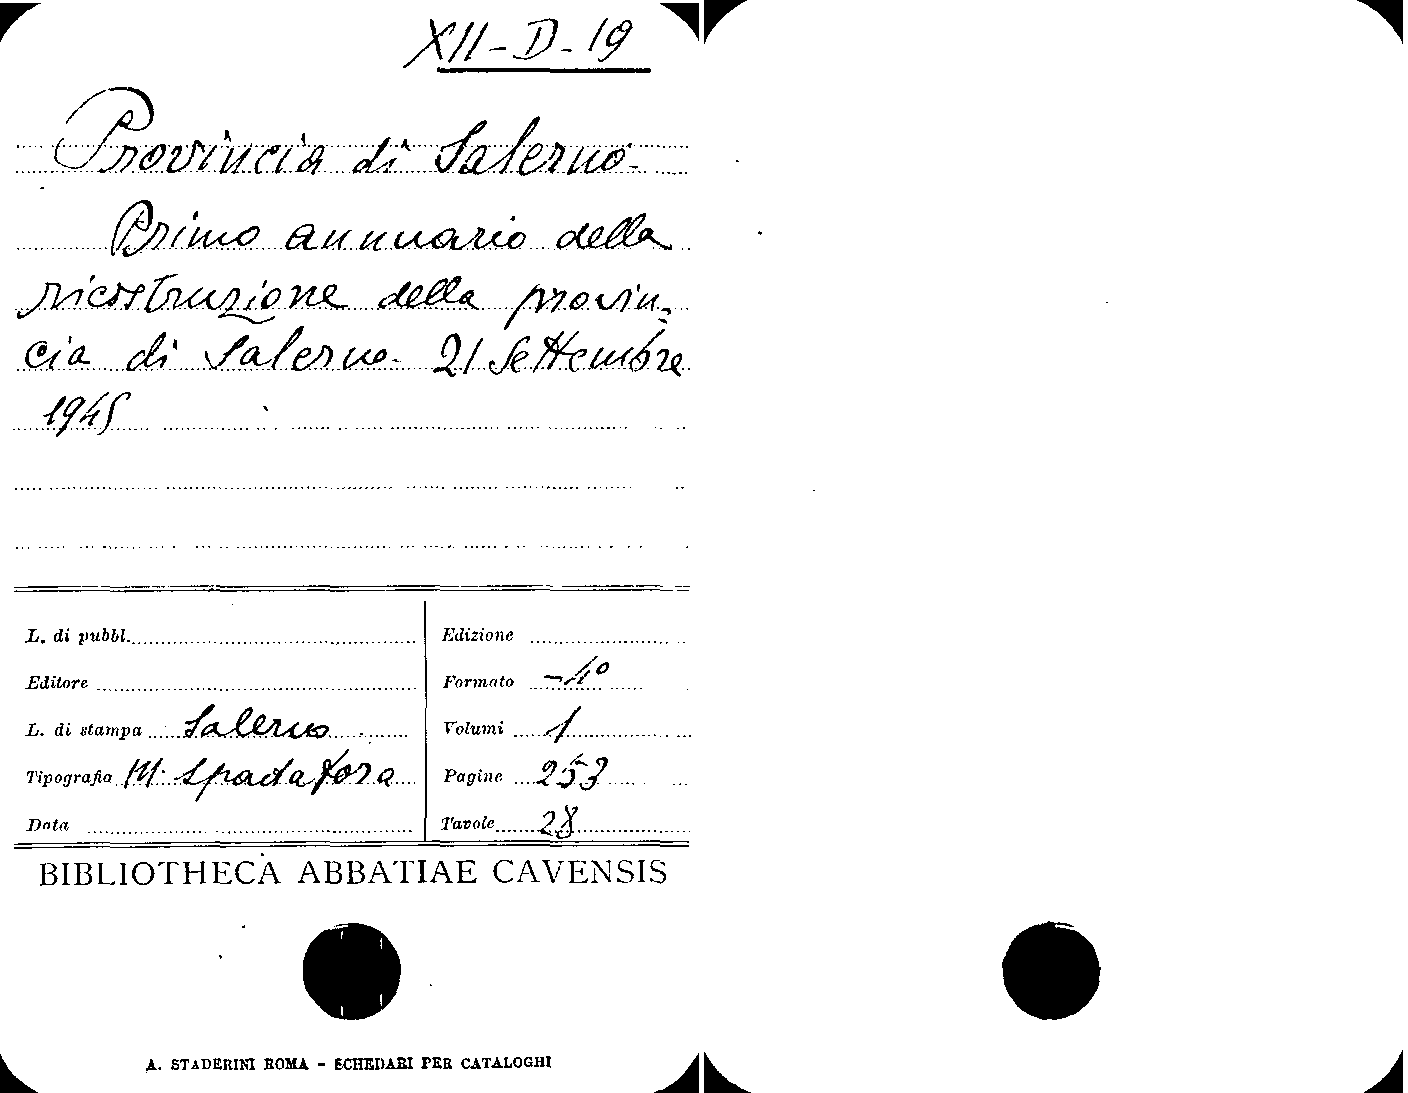 XII-D-19
Provincia di Salerno-
Primo annuario della
ricostruzione della provin-
cia di Salerno- 21 Settembre
1945
L. di pubbl.
Editore
L. di stampa Salerno
Tipografia M. Spadafora
Data
Edizione
Formato -4°
Volumi 1
Pagine 253
Tavole 28
BIBLIOTHECA ABBATIAE CAVENSIS
A. STADERINI ROMA - SCHEDARI PER CATALOGHI